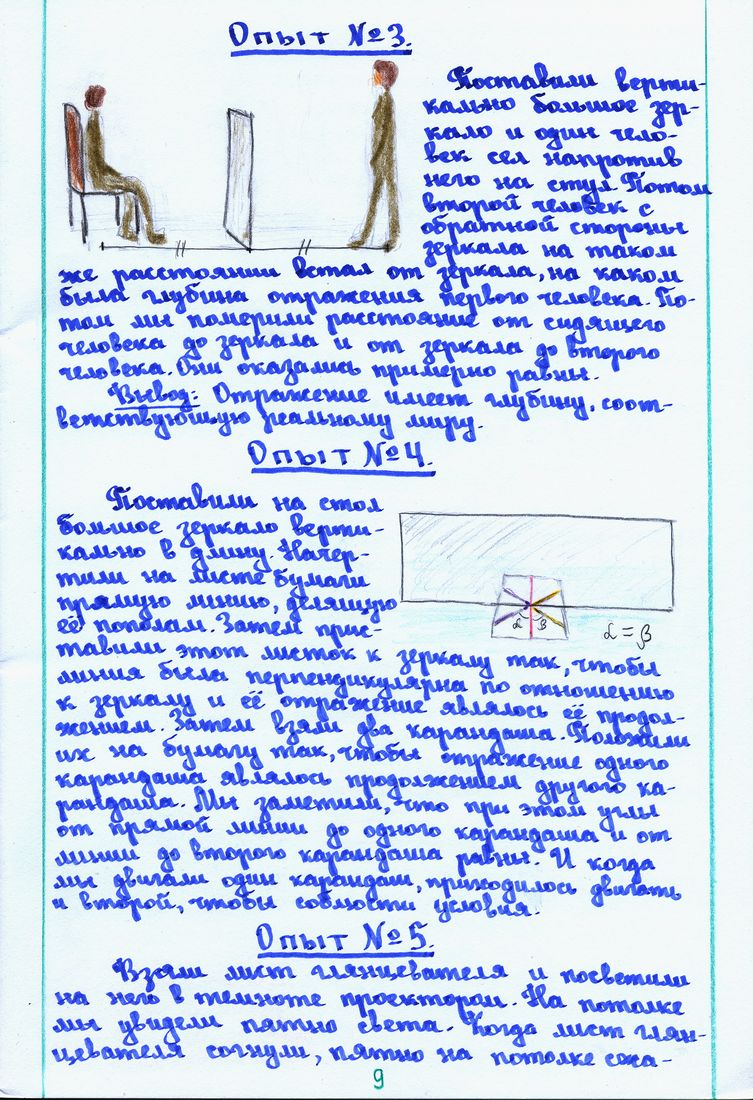 Опыт №3.
Поставили верти-
кально большое зер-
кало и один чело-
век сел напротив
него на стул. Потом
второй человек с
обратной стороны
зеркала на таком
же расстоянии встал от зеркала, на каком
была глубина отражения первого человека. По-
том мы померили расстояние от сидящего
человека до зеркала и от зеркала до второго
человека. Они оказались примерно равны.
Вывод: Отражение имеет глубину, соот-
ветствующую реальному миру.
Опыт №4.
Поставили на стол
большое зеркало верти-
кально в длину. Начер-
тили на листе бумаги
прямую линию, делящую
её пополам. Затем прис-
тавили этот листок к зеркалу так, чтобы
линия была перпендикулярна по отношению
к зеркалу и её отражение являлось её продол-
жением. Затем взяли два карандаша. Положили
их на бумагу так, чтобы отражение одного
карандаша являлось продолжением другого ка-
рандаша. Мы заметили, что при этом углы
от прямой линии до одного карандаша и от
линии до второго карандаша равны. И когда
мы двигали один карандаш, приходилось двигать
и второй, чтобы соблюсти условия.
α β
α = β
Опыт №5.
Взяли лист глянцевателя и посветили
на него в темноте проектором. На потолке
мы увидели пятно света. Когда лист глян-
цевателя согнули, пятно на потолке сжа-
9